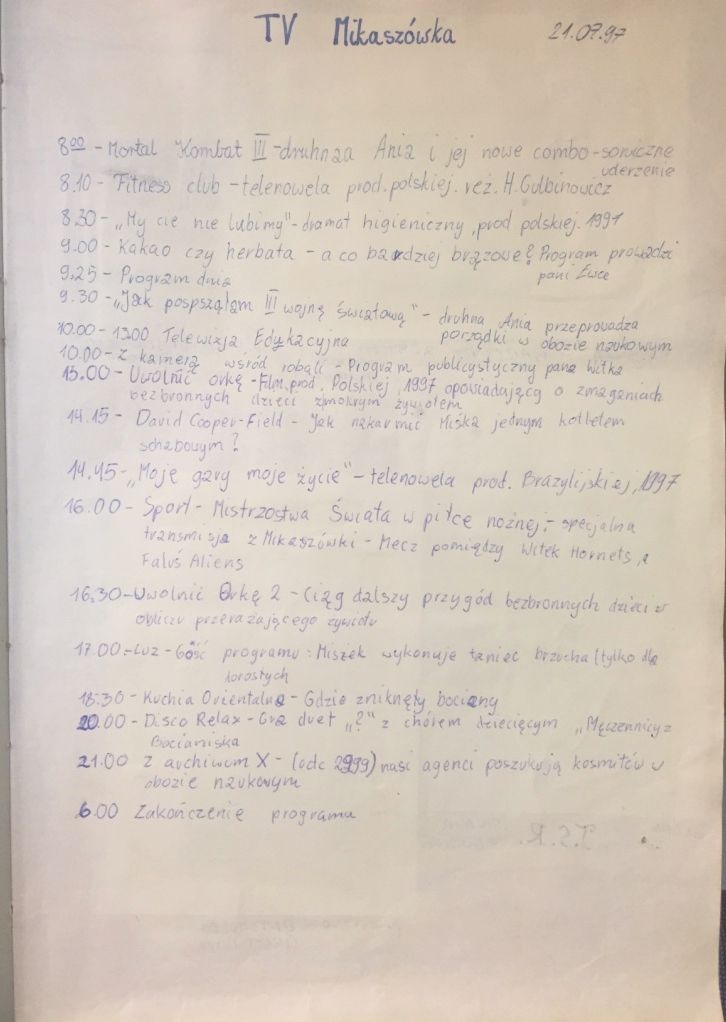 TV Mikaszówska 21.07.97
8⁰⁰ - Mortal Kombat III - druhnaa Ania i jej nowe combo-soniczne
uderzenie
8.10 - Fitness club - telenowela prod. polskiej. reż. H. Gulbinowicz
8.30 - „My cie nie lubimy" - dramat higieniczny, prod polskiej. 1997
9.00 - Kakao czy herbata - a co bardziej brązowe? Program prowadzi
pani Ewce
9,25 - Program dnia
9.30 - „Jak pospsząłam III wojnę światową" - druhna Ania przeprowadza
porządki w obozie naukowym
10.00 - 1300 Telewizja Edykacyjna
10.00 - Z kamerą wśród robali - Program publicystyczny pana Witka
13.00 - Uwolnić orkę - Film, prod. Polskiej, 1997 opowiadającą o zmaganiach
bezbronnych dzieci zmokrym żywiołem
14.15 - David Cooper-Field - Jak nakarmić Miśka jednym kotletem
schabowym?
14.45 - „Moje gary moje życie" - telenowela prod. Brazylijskiej, 1997
16.00 - Sport - Mistrzostwa Świata w piłce nożnej - specjalna
transmisja z Mikaszówki - Mecz pomiędzy Witek Hornets, a
Faluś Aliens
16.30 - Uwolnić Orkę 2 - Ciąg dalszy przygód bezbronnych dzieci w
obliczu przerażającego żywiołu
17.00 - Luz - Gość programu: Miszek wykonuje taniec brzucha (tylko dla
dorosłych
18.30 - Kuchia Orientalna - Gdzie zniknęły bociany
20.00 - Disco Relax - Gra duet „2" z chórem dziecięcym „Męczennicy z
Bocianiska
21.00 Z archiwum X - (odc 2999) nasi agenci poszukują kosmitów w
obozie naukowym
6.00 Zakończenie programu
J.S.R.